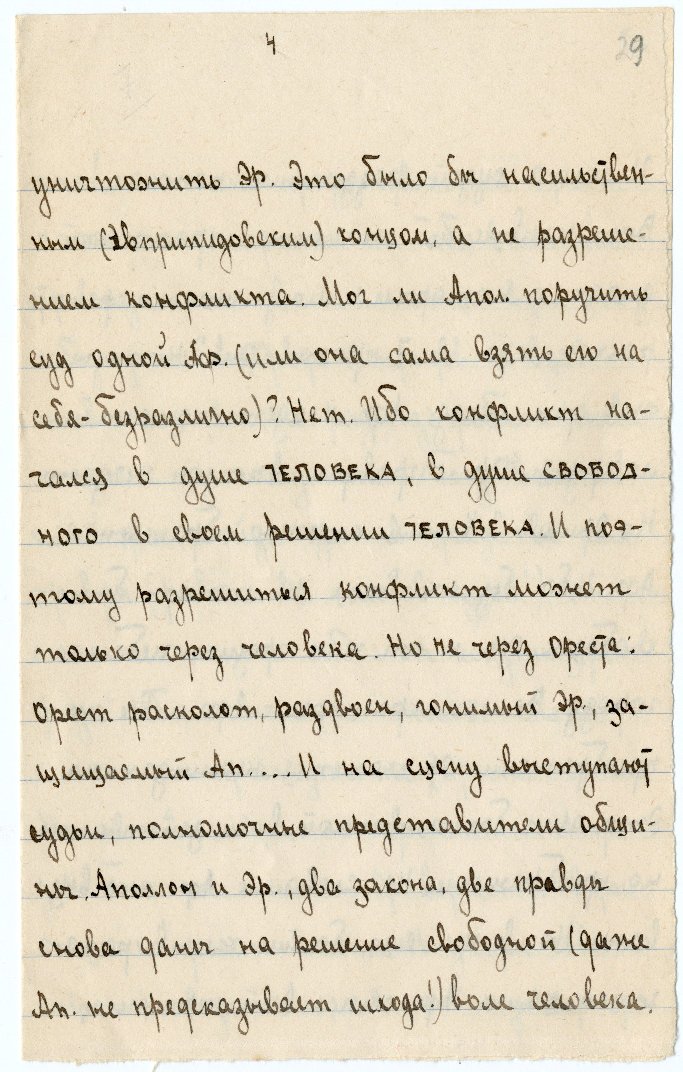 4
29
уничтожить Эр. Это было бы насильствен-
ным (Эврипидовским) концом, а не разреше-
нием конфликта. Мог ли Апол. поручить
суд одной Аф. (или она сама взять его на
себя - безразлично)? Нет. Ибо конфликт на-
чался в душе ЧЕЛОВЕКА, в душе СВОБОД-
НОГО в своем решении ЧЕЛОВЕКА. И поэ-
тому разрешиться конфликт может
только через человека. Но не через Ореста:
Орест расколот, раздвоен, гонимый Эр., за-
щищаемый Ап.... И на сцену выступают
судьи, полномочные представители общи-
ны. Аполлон и Эр., два закона, две правды
снова даны на решение свободной (даже
Ап. не предсказывает исхода!) воле человека.